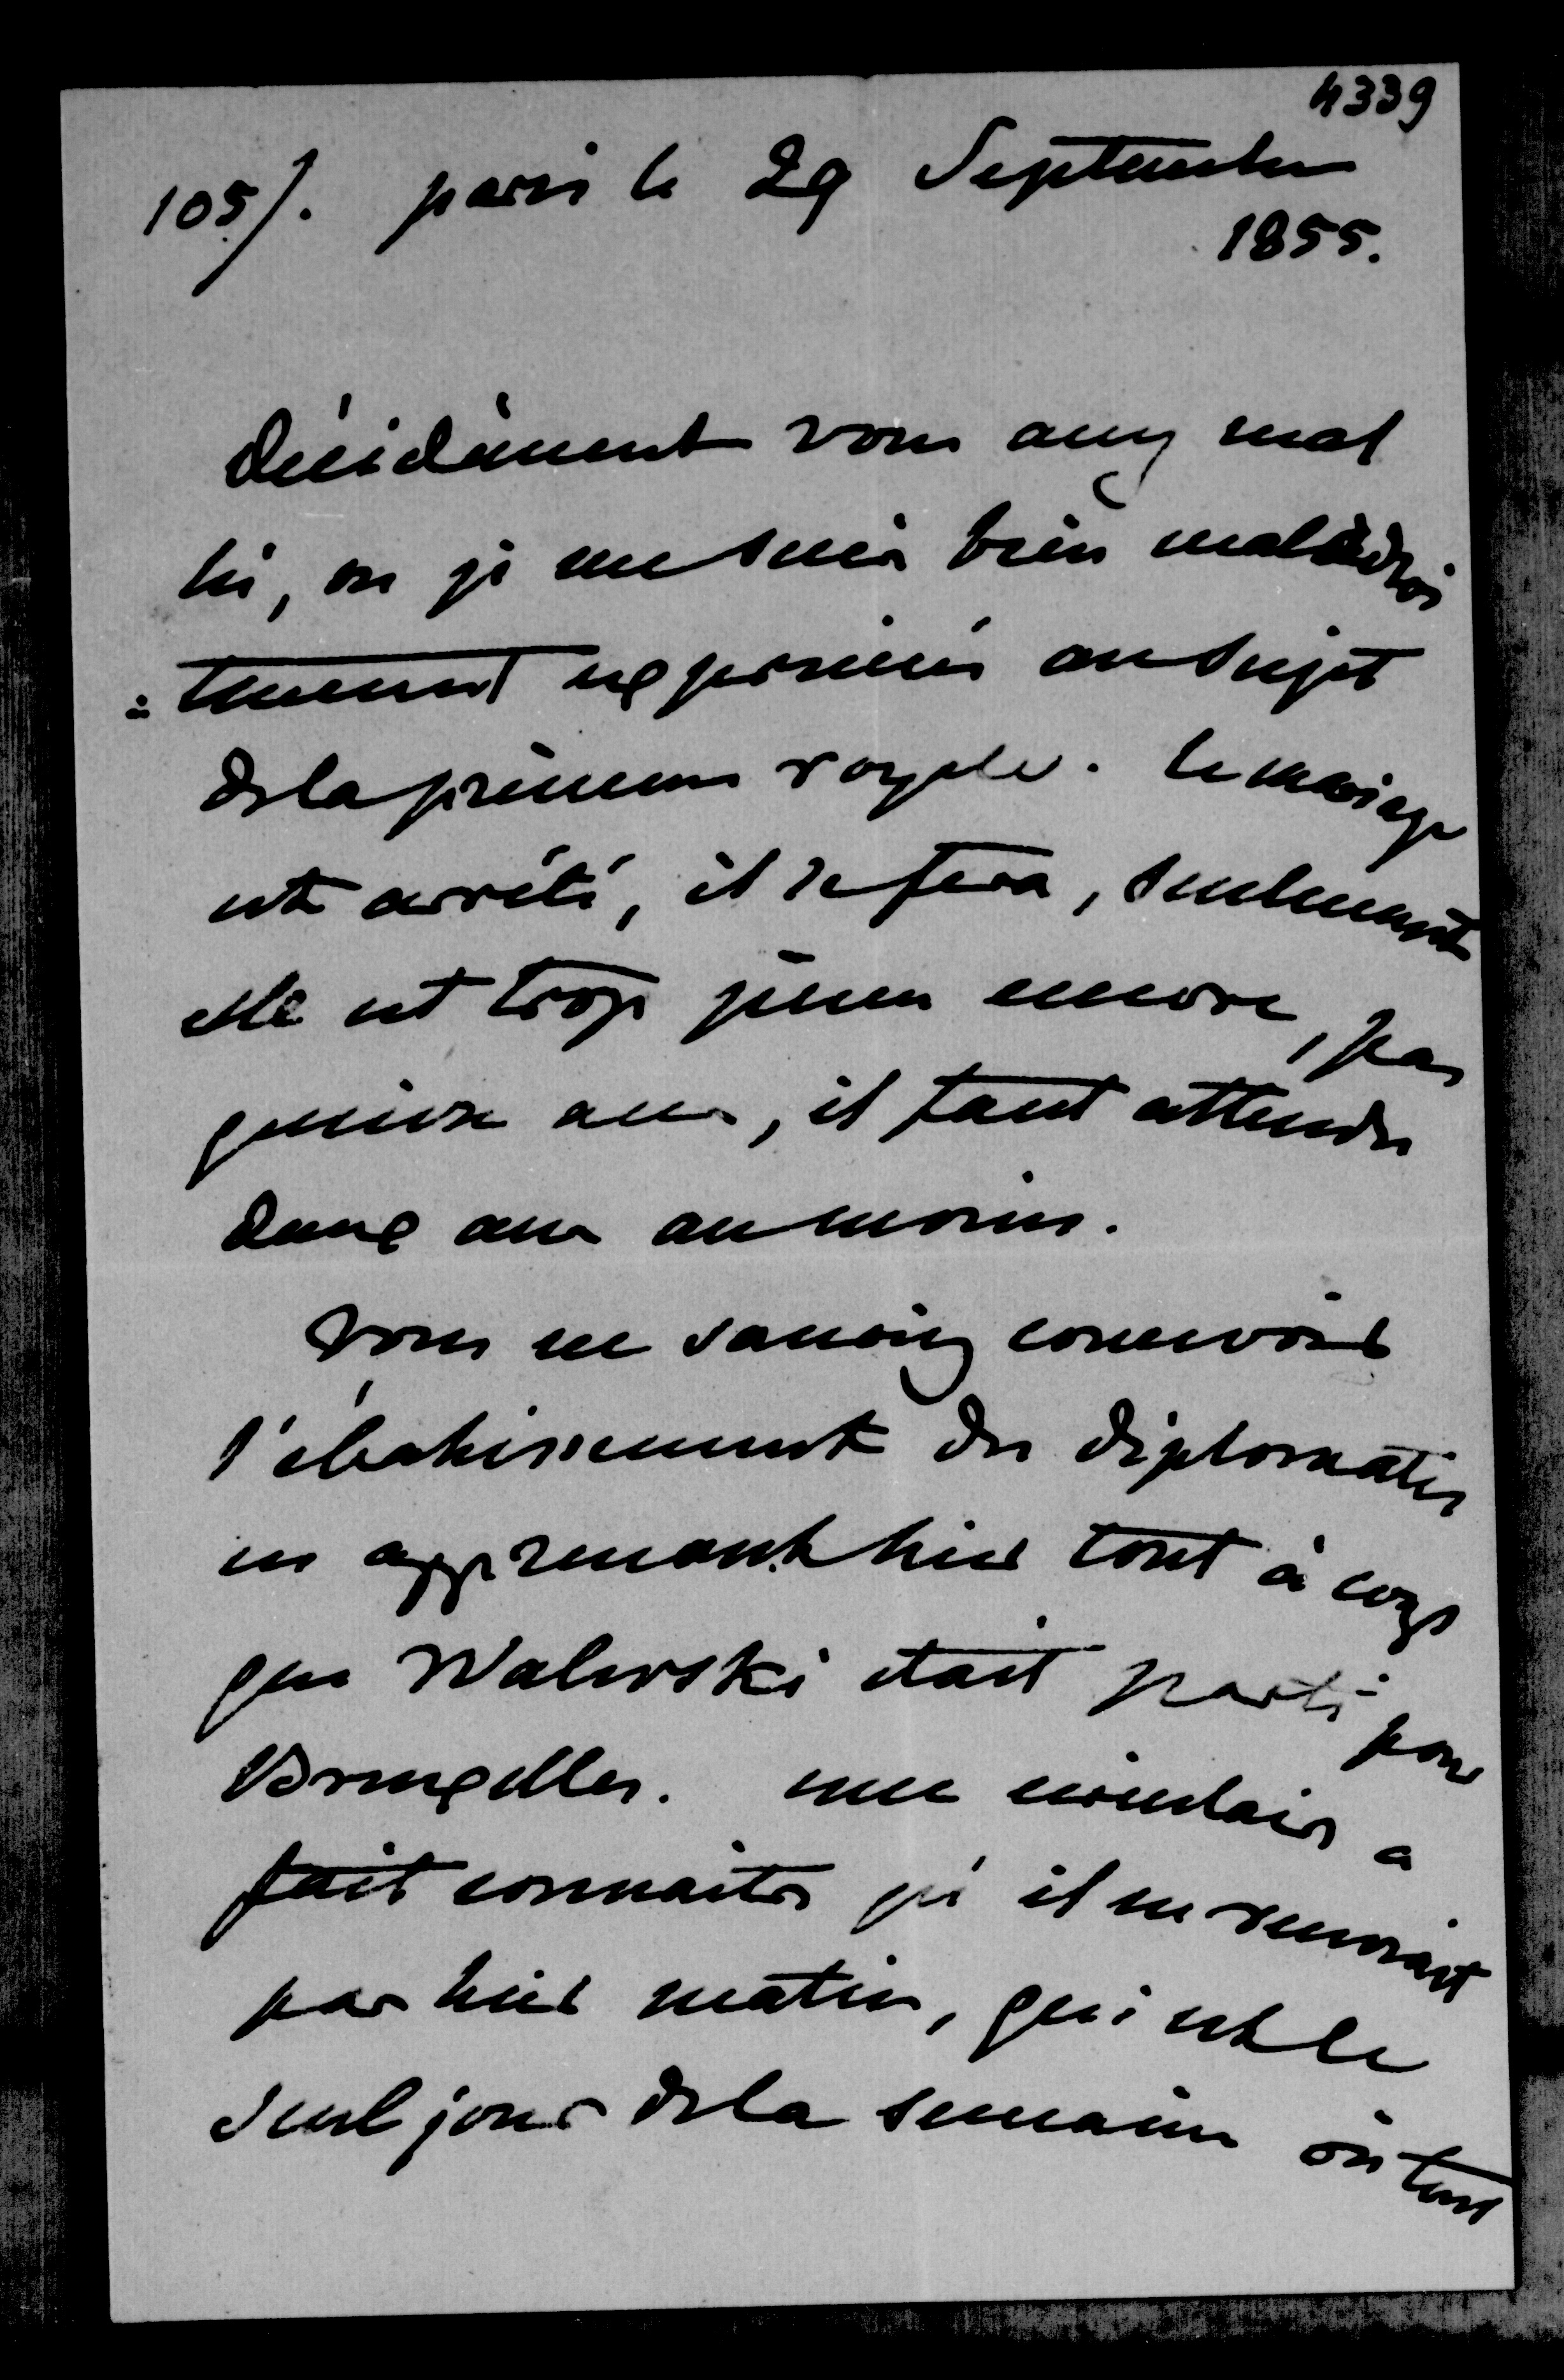 4339
105/. paris le 29 Septembre
1855.
Décidément vous avez mal
lu, ou je me suis bien maladroi
=tement exprimée au sujet
de la princesse royale. le mariage
est arrêté, il se fera, seulement
elle est trop jeune encore, pas
quinze ans, il faut attendre
deux ans au moins.
vous ne sauriez concevoir
l'ébahissement des diplomates
en apprenant hier tout à coup
que Walewski était parti pour
Bruxelles. une circulaire a
fait connaitre qu'il ne recevrait
pas hier matin, qui est le
seul jour de la semaine où tout